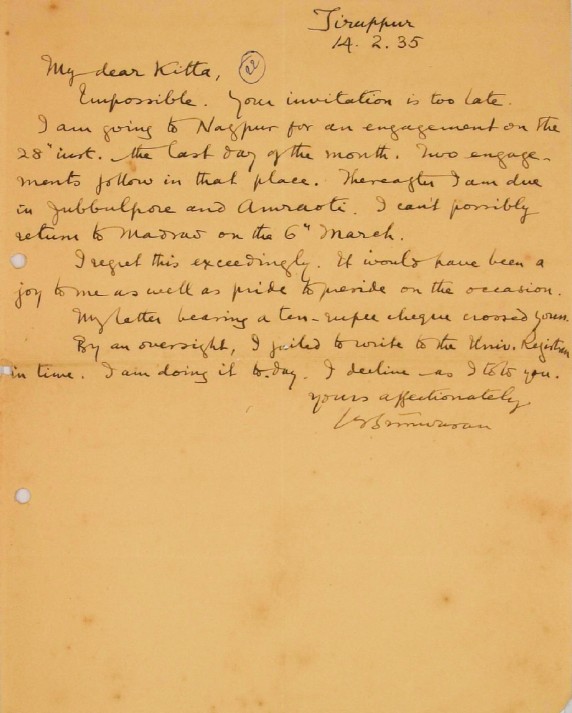 Tiruppur
14.2.35
My dear Kitta, 22
Impossible. Your invitation is too late.
I am going to Nagpur for an engagement on the
28th inst. the last day of the month. Two engage-
ments follow in that place. Thereafter I am due
in Jubbulpore and Amraoti. I can't possibly
return to Madras on the 6th March.
I regret this exceedingly. It would have been a
joy to me as well as pride to preside on the occasion.
My letter bearing a ten-rupee cheque crossed yours.
By an oversight, I failed to write to the Univ. Registrar
in time. I am doing it to-day. I decline as I told you.
yours affectionately
V S Srinivasan